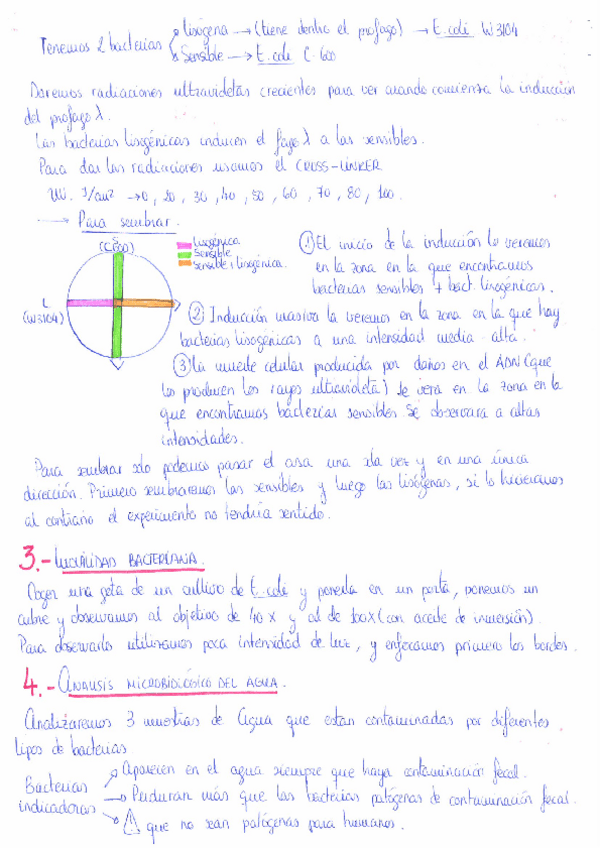 Tenemos 2 bacterias
lisógena → (tiene dentro el profago) → E. coli W3104
Sensible → E. coli C-600
Daremos radiaciones ultravioletas crecientes para ver cuando comienza la inducción
del profago λ.
Las bacterias lisogénicas inducen el fago λ a las sensibles.
Para dar las radiaciones usamos el CROSS-LINKER
UV. J/cm² → 0, 20, 30, 40, 50, 60, 70, 80, 100.
→ Para sembrar.
S
(C600)
Lisogénica
Sensible
Sensible + lisogénica.
L
(W3104)
① El inicio de la inducción lo veremos
en la zona en la que encontramos
bacterias sensibles + bact. lisogénicas.
② Inducción masiva la veremos en la zona en la que hay
bacterias lisogénicas a una intensidad media-alta.
③ La muerte celular producida por daños en el ADN (que
los producen los rayos ultravioleta) se verá en la zona en la
que encontramos bacterias sensibles. Se observará a altas
intensidades.
Para sembrar solo podemos pasar el asa una sola vez y en una única
dirección. Primero sembraremos las sensibles y luego las lisógenas, si lo hicieramos
al contrario el experimento no tendría sentido.
3.- MOVILIDAD BACTERIANA.
Coger una gota de un cultivo de E. coli y ponerla en un porta, ponemos un
cubre y observamos al objetivo de 40x y al de 100x (con aceite de inmersión).
Para observarlo utilizamos poca intensidad de luz, y enfocamos primero los bordes.
4.- ANALISIS MICROBIOLÓGICO DEL AGUA.
Analizaremos 3 muestras de Agua que estan contaminadas por diferentes
tipos de bacterias
Bacterias
indicadoras
Aparecen en el agua siempre que haya contaminación fecal.
Perduran más que las bacterias patógenas de contaminación fecal.
que no sean patógenas para humanos.